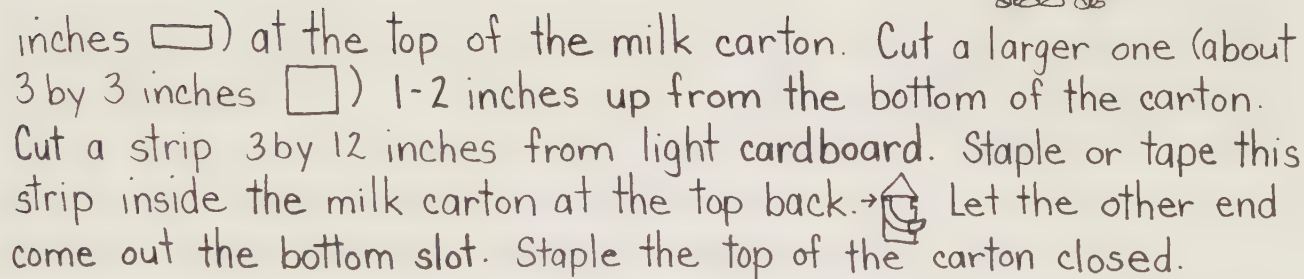 inches ) at the top of the milk carton. Cut a larger one (about
3 by 3 inches ) 1-2 inches up from the bottom of the carton.
Cut a strip 3 by 12 inches from light cardboard. Staple or tape this
strip inside the milk carton at the top back.→ Let the other end
come out the bottom slot. Staple the top of the carton closed.